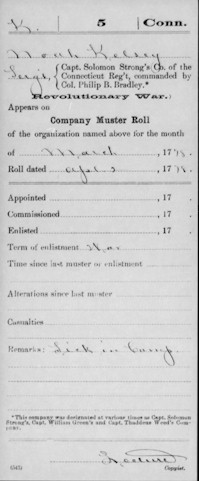 K. 5 Conn.
Noah Kelley
Sergt, Capt. Solomon Strong's Co. of the
Connecticut Reg't, commanded by
Col. Philip B. Bradley.*
(Revolutionary War.)
Appears on
Company Muster Roll
of the organization named above for the month
of March, 177
Roll dated Apr, 177
Appointed, 17
Commissioned, 17
Enlisted, 17
Term of enlistment War
Time since last muster or enlistment
Alterations since last muster
Casualties
Remarks: Sick in Camp.
*This company was designated at various times as Capt. Solomon
Strong's, Capt. William Green's and Capt. Thaddeus Weed's Com-
pany.
(545) Copyist.